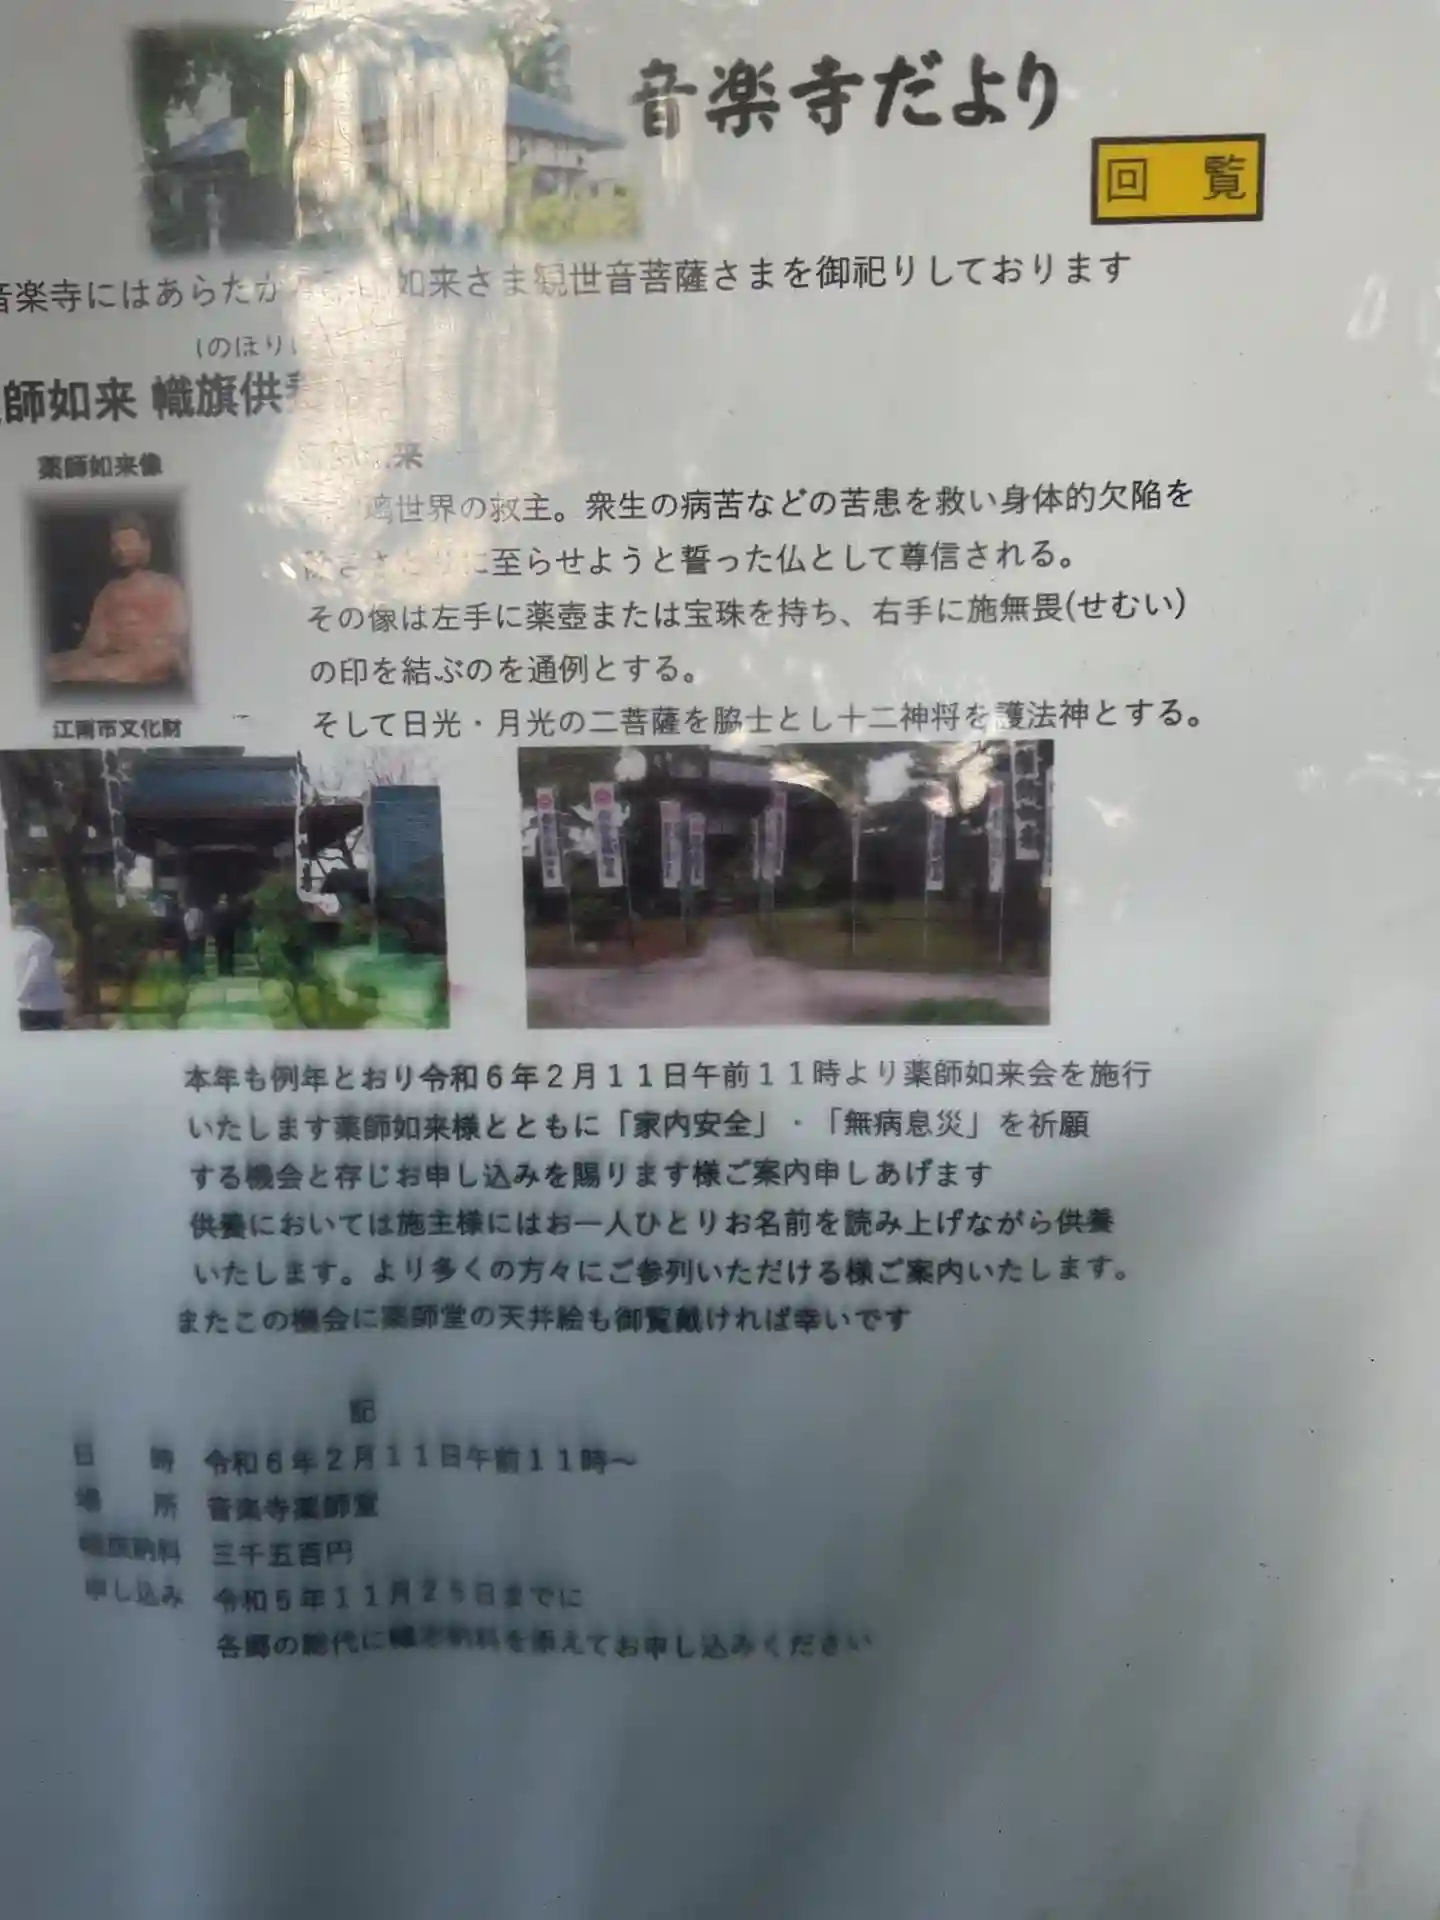 音楽寺だより
回 覧
音楽寺にはあらたか 如来さま観世音菩薩さまを御祀りしております
(のほり
師如来 幟旗供養
薬師如来像
来
璃世界の救主。衆生の病苦などの苦患を救い身体的欠陥を
に至らせようと誓った仏として尊信される。
その像は左手に薬壺または宝珠を持ち、右手に施無畏(せむい)
の印を結ぶのを通例とする。
そして日光・月光の二菩薩を脇士とし十二神将を護法神とする。
江南市文化財
本年も例年とおり令和6年2月11日午前11時より薬師如来会を施行
いたします薬師如来様とともに「家内安全」・「無病息災」を祈願
する機会と存じお申し込みを賜ります様ご案内申しあげます
供養においては施主様にはお一人ひとりお名前を読み上げながら供養
いたします。より多くの方々にご参列いただける様ご案内いたします。
またこの機会に薬師堂の天井絵も御覧戴ければ幸いです
記
日 時 令和6年2月11日午前11時~
場 所 音楽寺薬師堂
三千五百円
申し込み 令和5年11月25日までに
各郷の総代に 納料を添えてお申し込みください